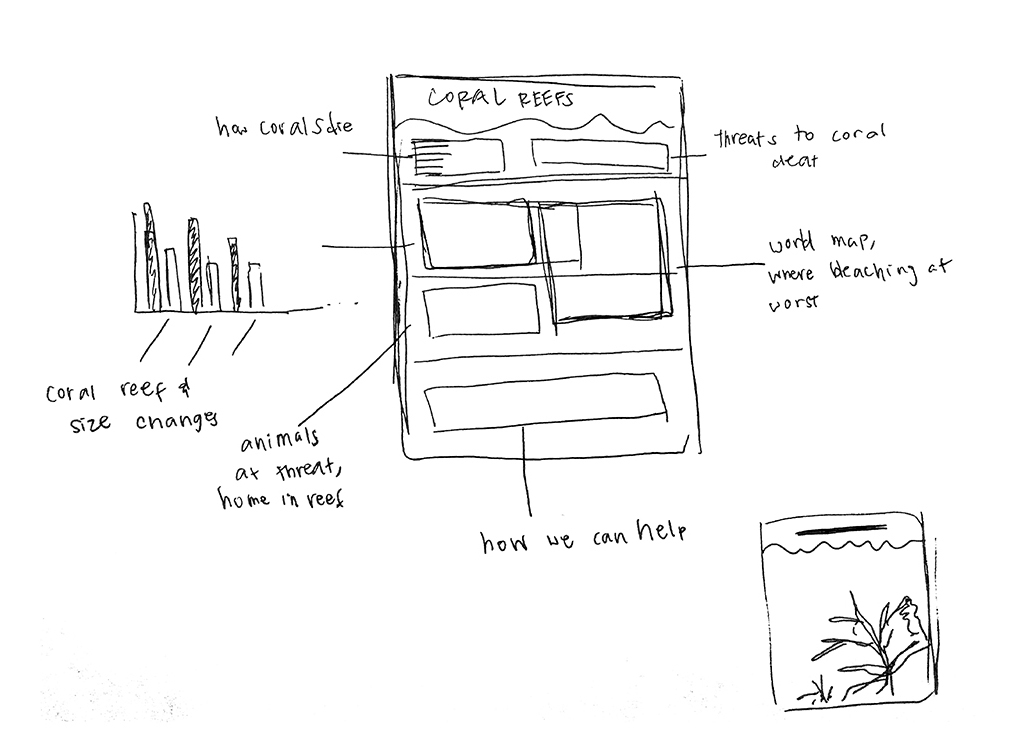 CORAL REEFS
how corals die
threats to coral
deat
world map,
where bleaching at
worst
coral reef &
size changes
animals
at threat,
home in reef
how we can help